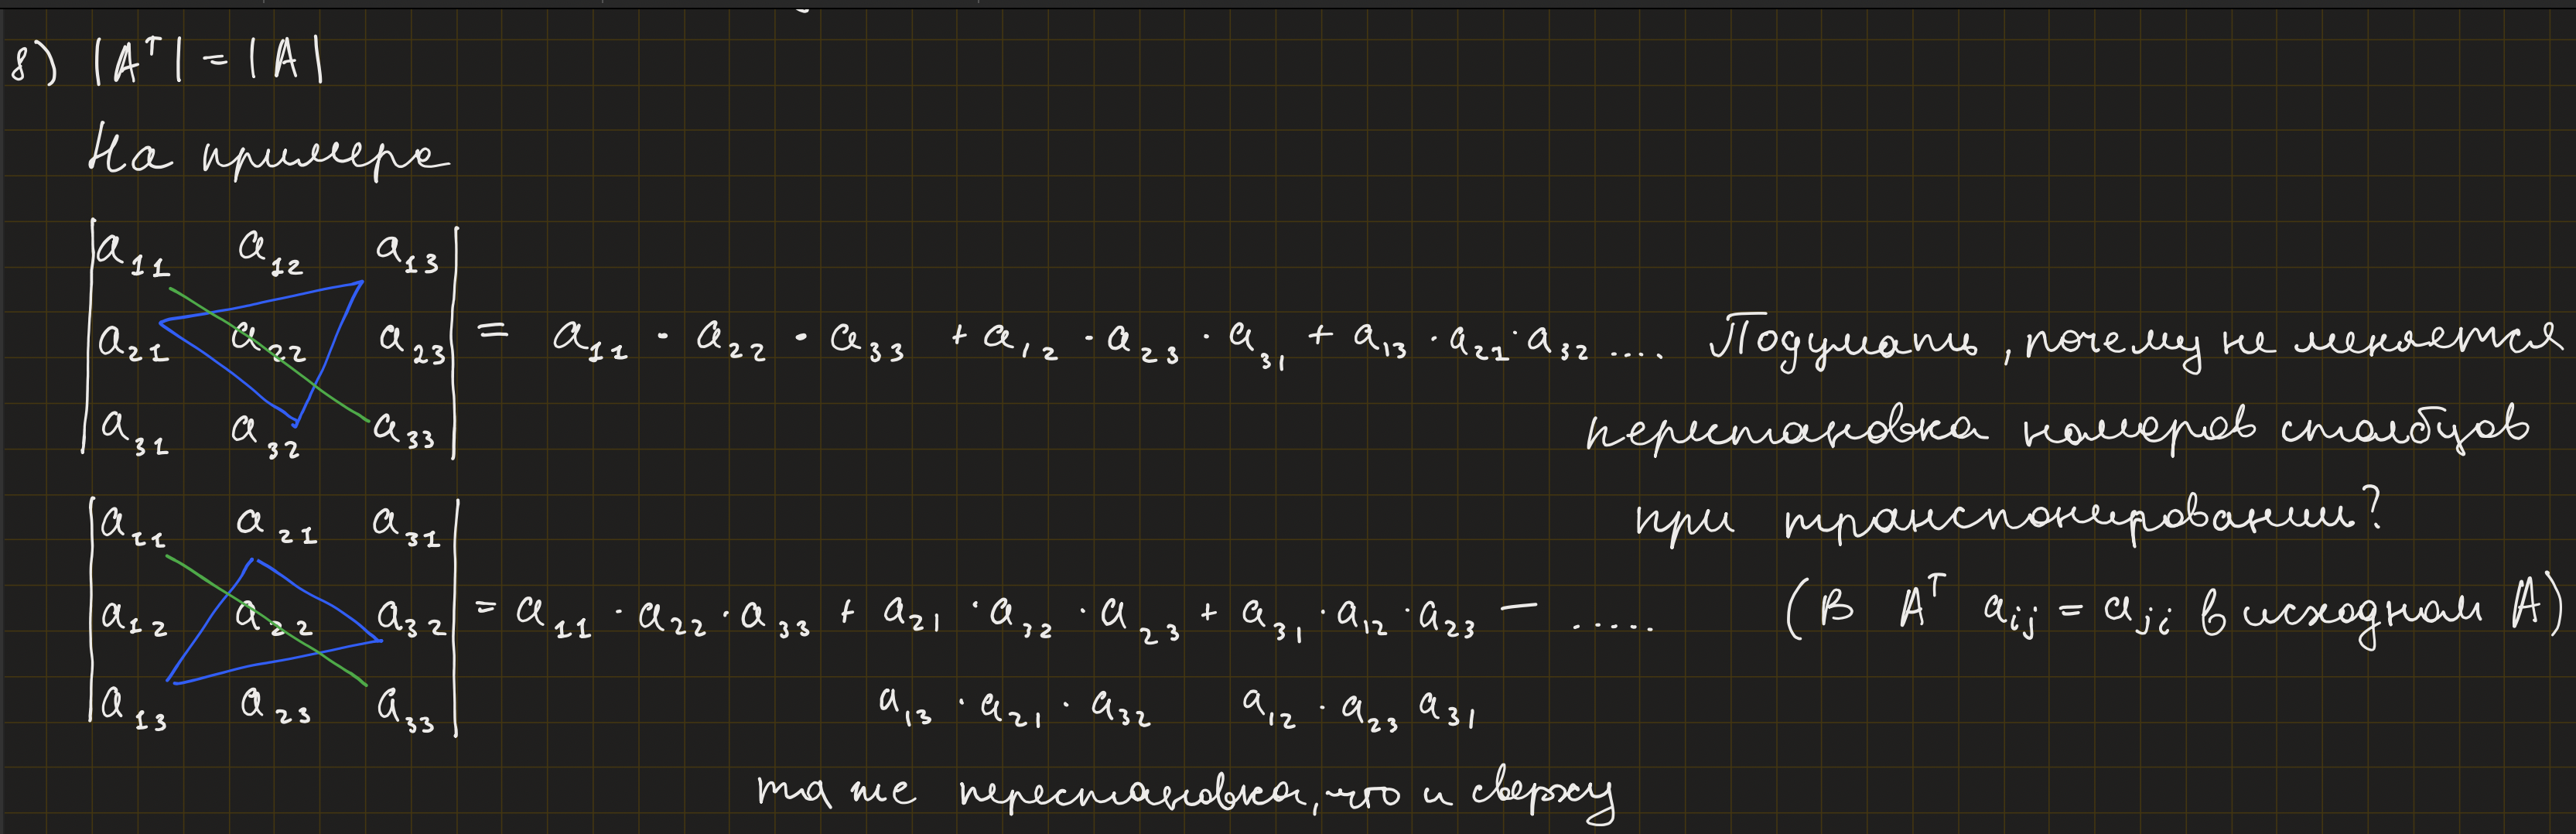 8) |Aᵀ| = |A|
На примере
|a₁₁ a₁₂ a₁₃|
|a₂₁ a₂₂ a₂₃| = a₁₁ · a₂₂ · a₃₃ + a₁₂ · a₂₃ · a₃₁ + a₁₃ · a₂₁ · a₃₂ .... Подумать, почему не меняется
|a₃₁ a₃₂ a₃₃| перестановка номеров столбцов
при транспонировании?
|a₁₁ a₂₁ a₃₁|
|a₁₂ a₂₂ a₃₂| = a₁₁ · a₂₂ · a₃₃ + a₂₁ · a₃₂ · a₂₃ + a₃₁ · a₁₂ · a₂₃ – ..... (В Aᵀ aᵢⱼ = aⱼᵢ в исходном A)
|a₁₃ a₂₃ a₃₃| a₁₃ · a₂₁ · a₃₂ a₁₂ · a₂₃ a₃₁
та же перестановка, что и сверху